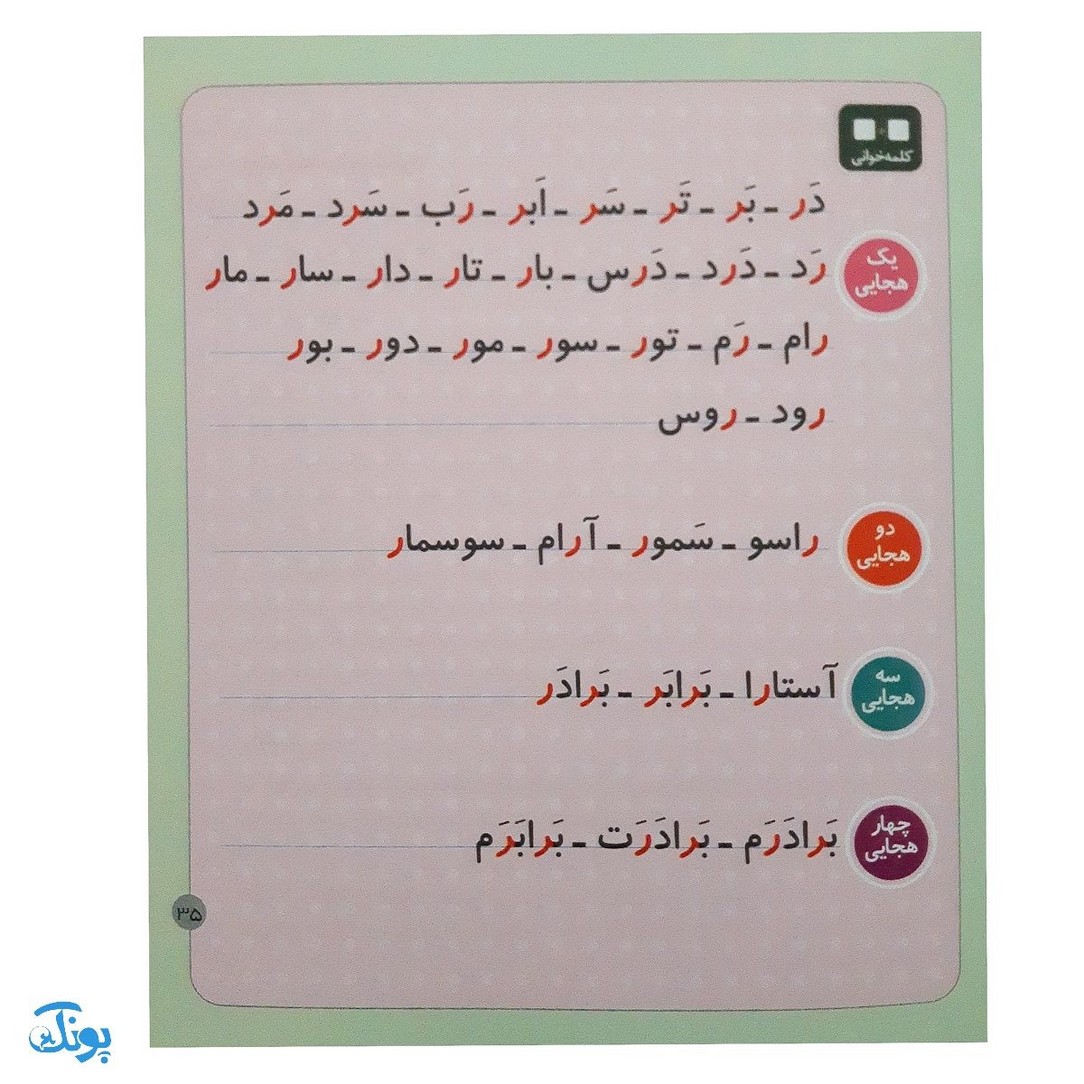 کلمه‌خوانی
دَر ـ بَر ـ تَر ـ سَر ـ اَبر ـ رَب ـ سَرد ـ مَرد
یک
هجایی
رَد ـ دَرد ـ دَرس ـ بار ـ تار ـ دار ـ سار ـ مار
رام ـ رَم ـ تور ـ سور ـ مور ـ دور ـ بور
رود ـ روس
دو
هجایی
راسو ـ سَمور ـ آرام ـ سوسمار
سه
هجایی
آستارا ـ بَرابَر ـ بَرادَر
چهار
هجایی
بَرادَرَم ـ بَرادَرَت ـ بَرابَرَم
۳۵
پونک